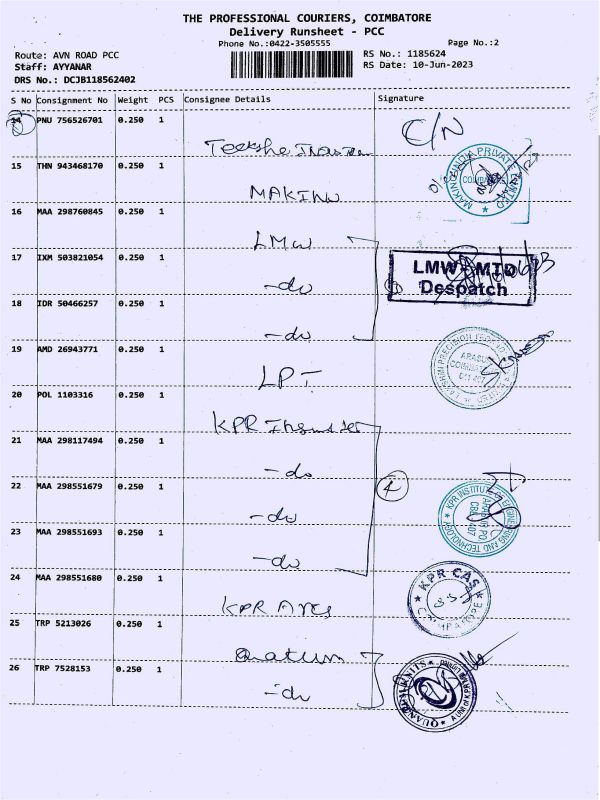 THE PROFESSIONAL COURIERS, COIMBATORE
Delivery Runsheet - PCC
Phone No.:0422-3505555
Page No.:2
Route: AVN ROAD PCC
RS No.: 1185624
Staff: AYYANAR
RS Date: 10-Jun-2023
DRS No.: DCJB118562402
S No Consignment No Weight PCS Consignee Details Signature
14 PNU 756526701 0.250 1
C/N
15 THN 943468170 0.250 1
MAKINO
MAKINO INDIA PRIVATE LIMITED
16 MAA 298760845 0.250 1
LMW
17 IXM 503821054 0.250 1
-do
LMW - MTD
Despatch
18 IDR 50466257 0.250 1
-do
19 AMD 26943771 0.250 1
LPT
20 POL 1103316 0.250 1
KPR
21 MAA 298117494 0.250 1
-do
22 MAA 298551679 0.250 1
-do
4
KPR INSTITUTE OF ENGINEERING AND TECHNOLOGY
23 MAA 298551693 0.250 1
-do
24 MAA 298551680 0.250 1
KPR Arts
KPR CAS
COIMBATORE
25 TRP 5213026 0.250 1
Quatum
26 TRP 7528153 0.250 1
-do